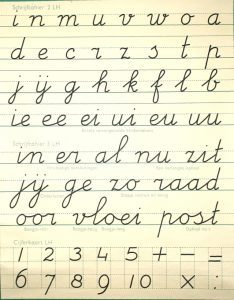 Schrijfkaart 2 LH
i n m u v w o a
d e c r z s t p
j ij g h k f l b
ie ee ei ui eu uu
Schrijfkaart LH
in er al nu zit
jij ge zo raad
oor vloei post
Cijferkaart LH
1 2 3 4 5 + - =
6 7 8 9 10 x :